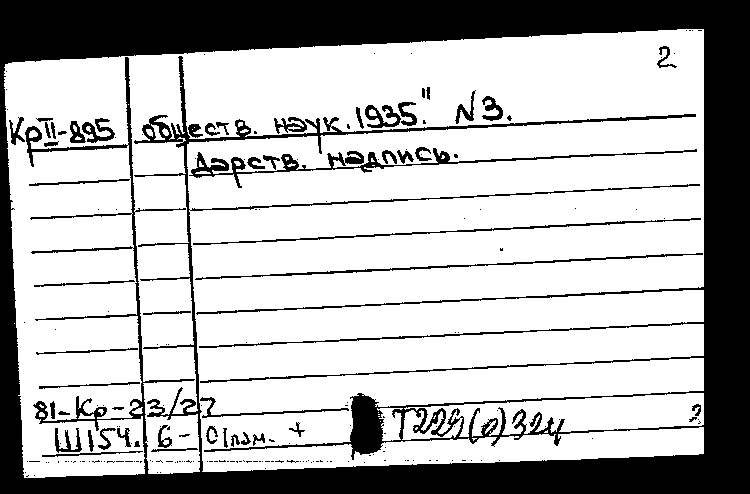 2
Кр II-895 обществ. наук. 1935." N3.
Дарств. надпись.
81-Кр-23/27
Ш154. 6-
Т229(0)324